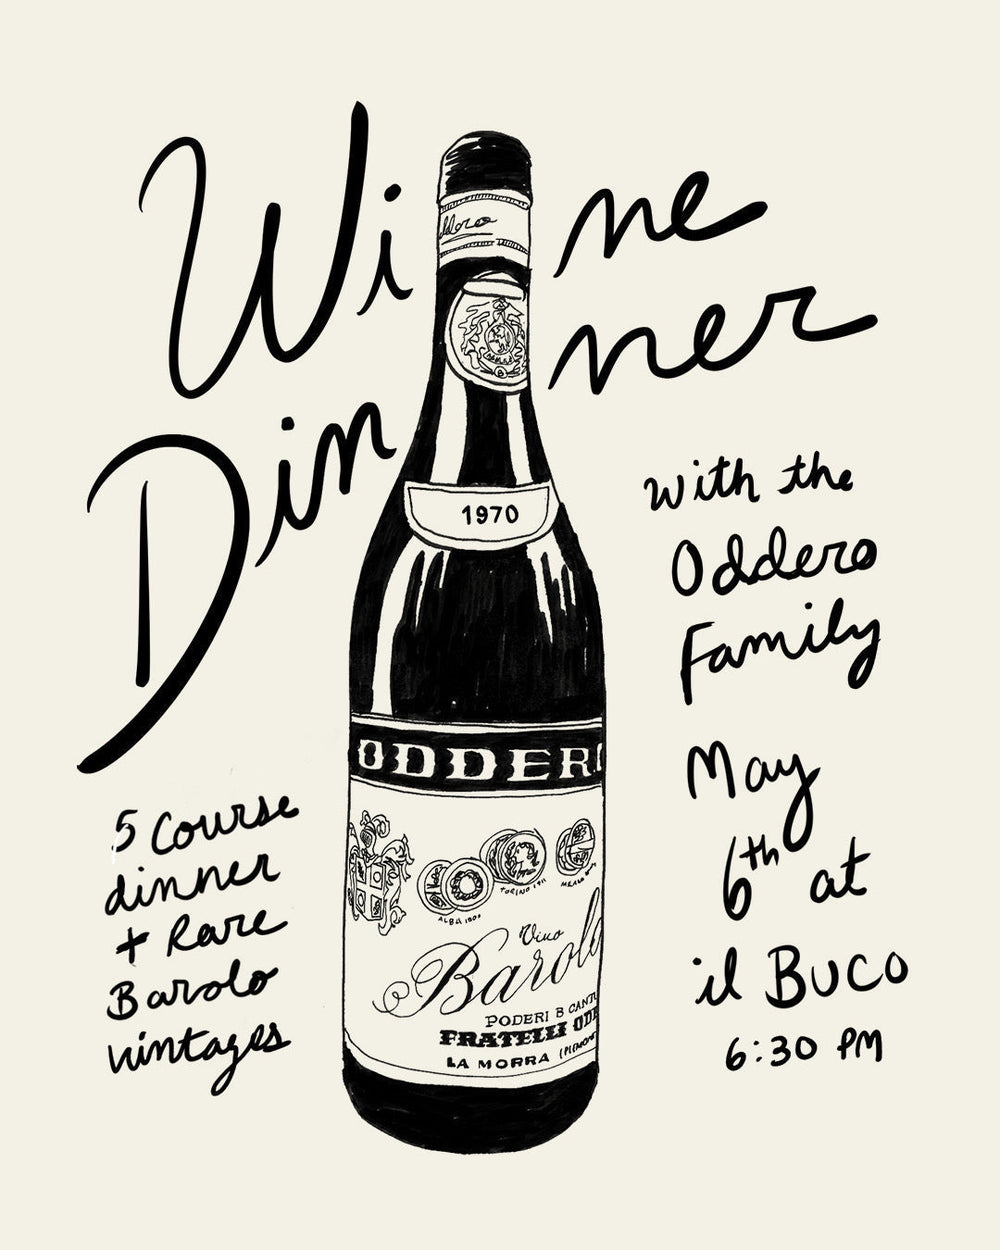 Wine
Dinner
with the
Oddero
Family
May
6th at
il Buco
6:30 PM
5 course
dinner
+ Rare
Barolo
vintages
1970
ODDER
ALBA 1900
TORINO 1911
Vino
Barolo
PODERI & CANT
FRATELLI ODE
LA MORRA (PIEMON